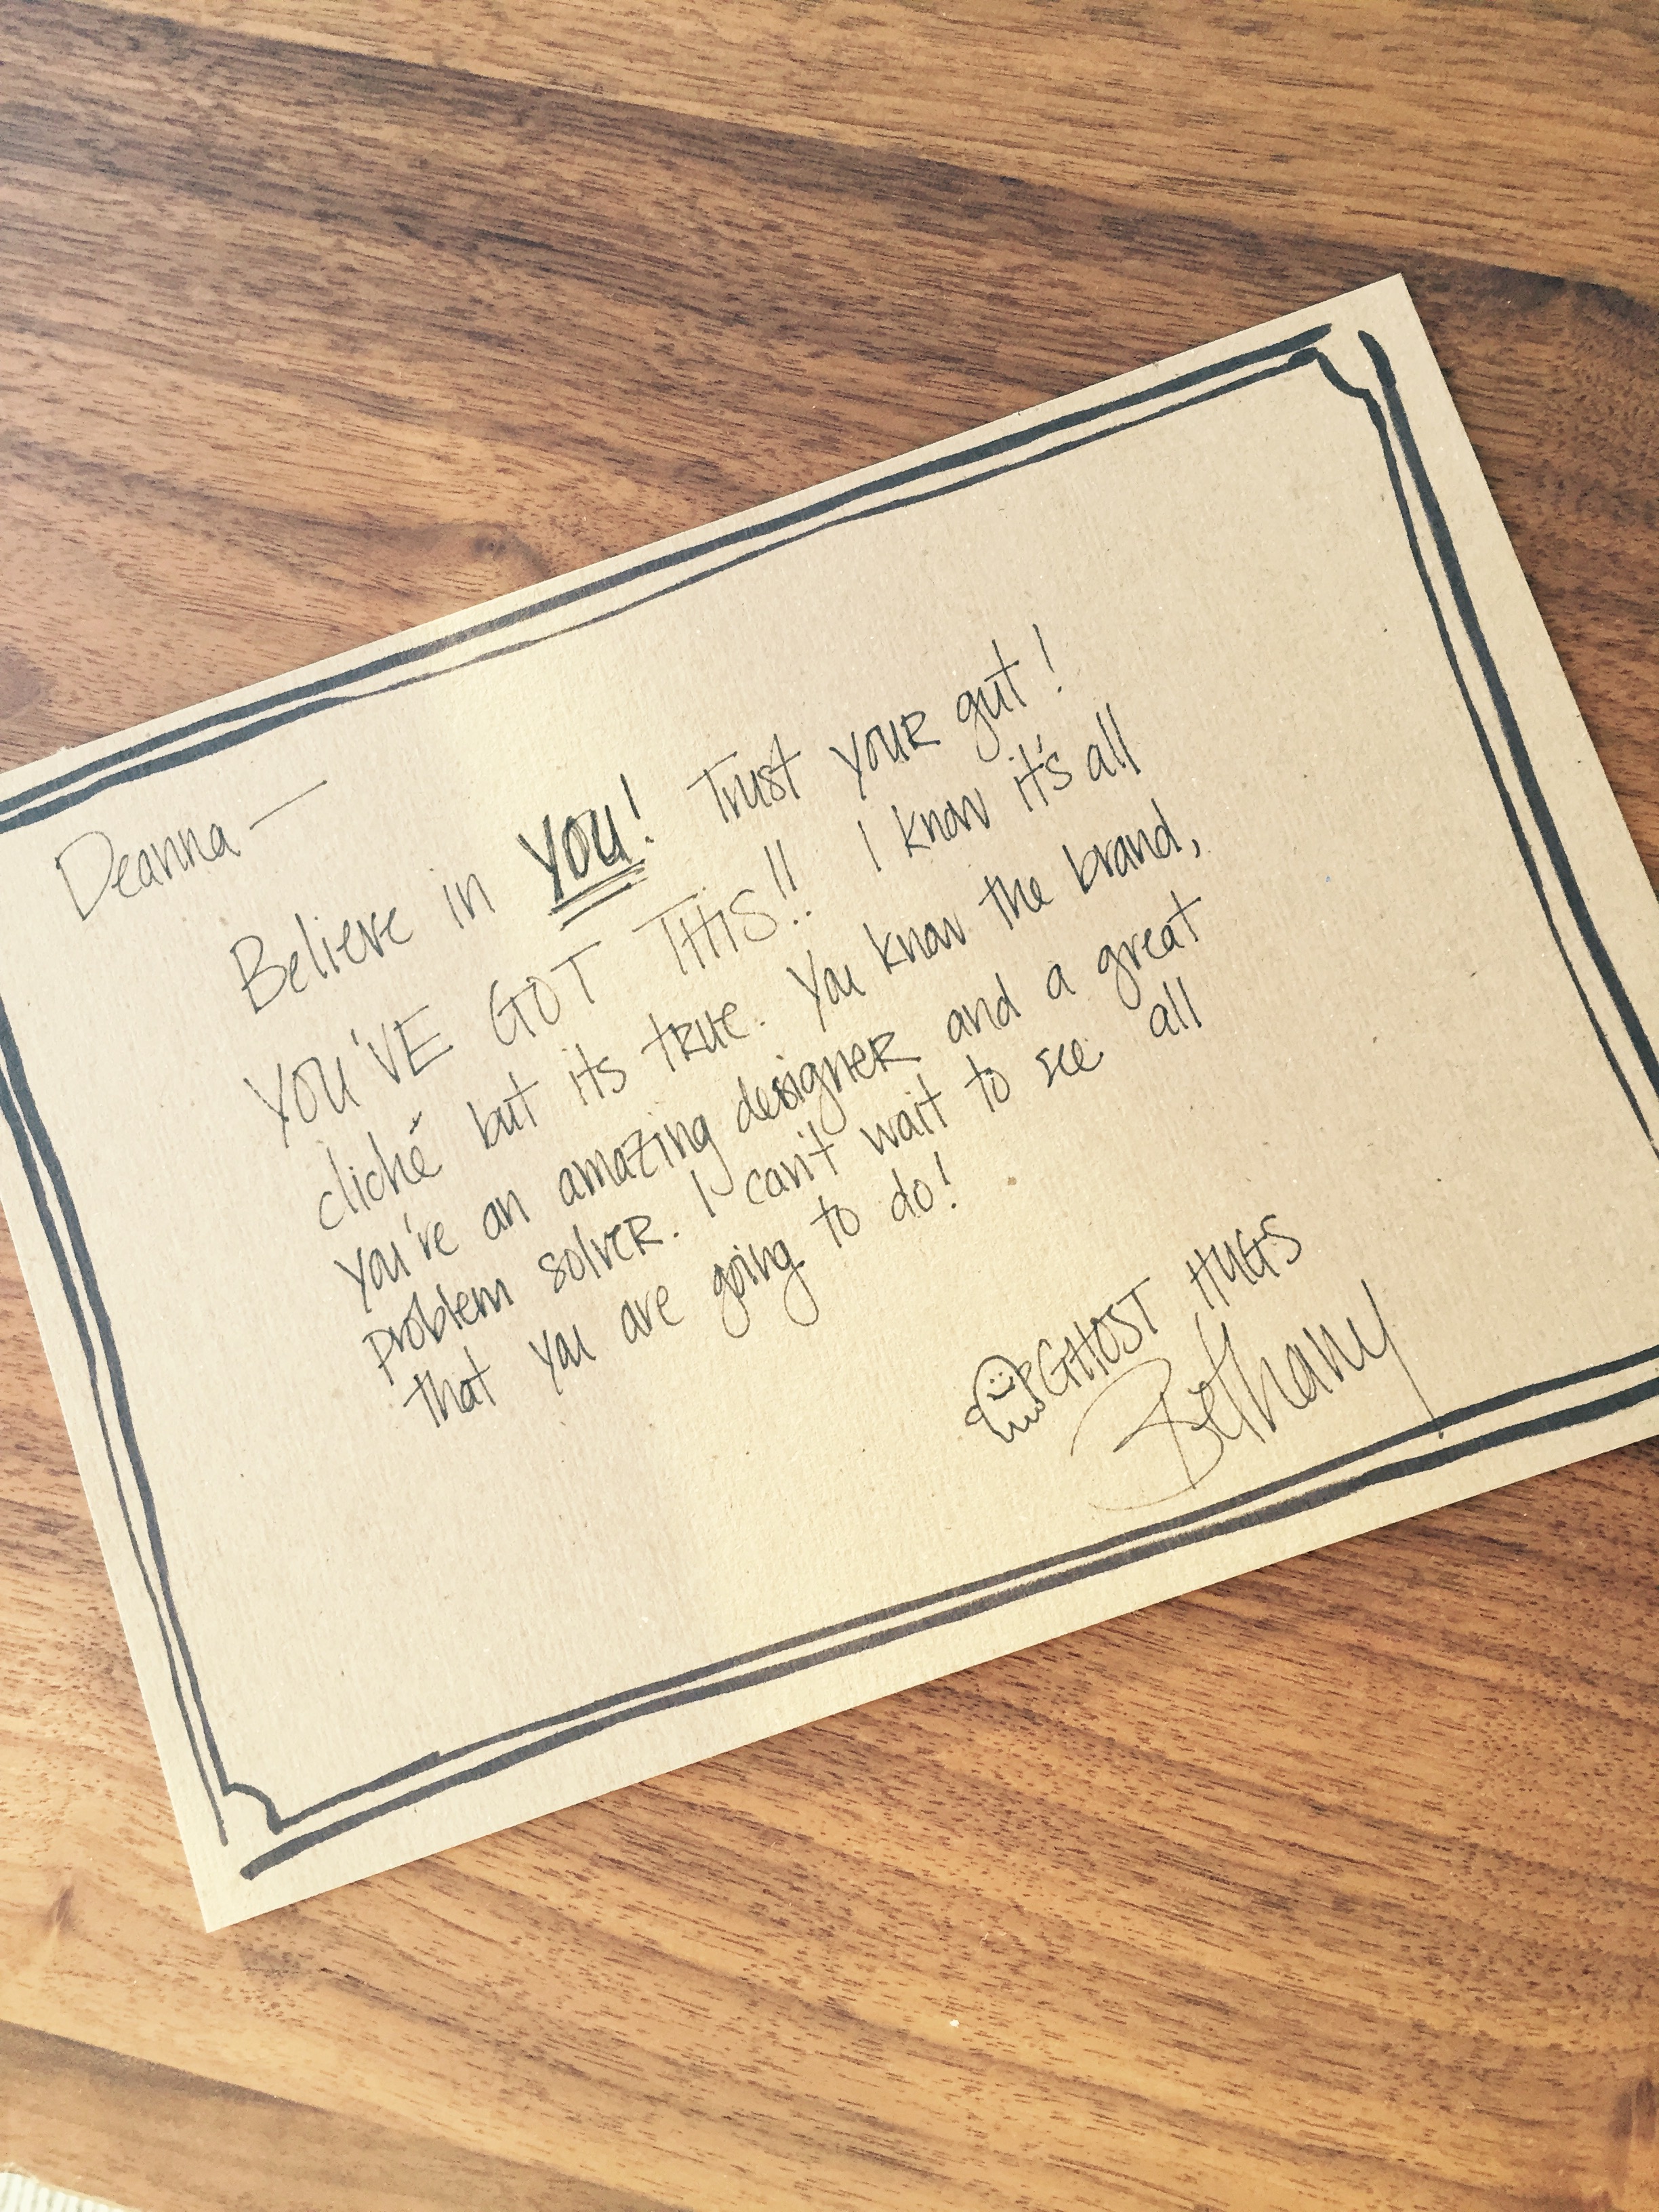 Deanna —
Believe in YOU! Trust your gut!
YOU'VE GOT THIS!! I know it's all
cliché but its true. You know the brand,
you're an amazing designer and a great
problem solver. I can't wait to see all
that you are going to do!
GHOST HUGS
Bethany